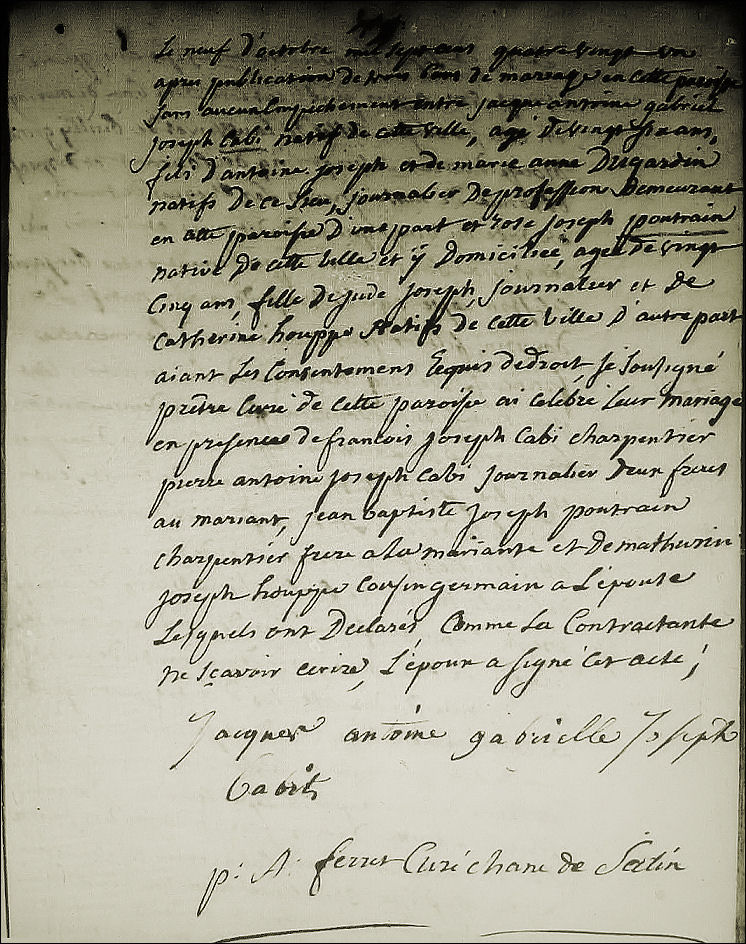 Le neuf d'octobre mil sept cens quatre vingt un
apres publication de trois bans de mariage en cette paroisse
sans aucun empechement entre jacque antoine gabriel
joseph Cabi natif de cette ville, agé de vingt six ans,
fils d'antoine joseph et de marie anne Dugardin
natifs de ce lieu, journalier De profession Demeurant
en cette paroisse D'une part et rose joseph poutrain
native De cette ville et ÿ Domiciliée, agée de vingt
Cinq ans, fille De jude joseph, journalier et De
Catherine houppe Natifs de cette ville D'autre part
aiant Les Consentement Requis de droit je soussigné
prêtre Curé de cette paroisse ai celébré Leur mariage
en presence de francois joseph Cabi charpentier
pierre antoine joseph Cabi journalier Deux freres
au mariant, jean baptiste joseph poutrain
charpentier frere a La mariante et De mathurin
joseph houppe Cousin germain a L'épouse
Lesquels ont Declarés, Comme La Contractante
ne sçavoir ecrire, L'époux a signé Cet acte;
Jacques antoine gabrielle Joseph
Cabit
p: A: ferret Curé chane de St